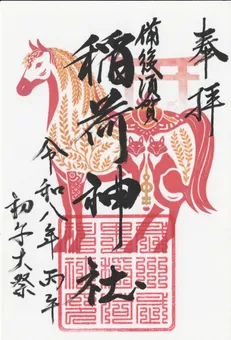 奉拝
備後須賀
稲荷神社
令和八年 丙午
初午大祭